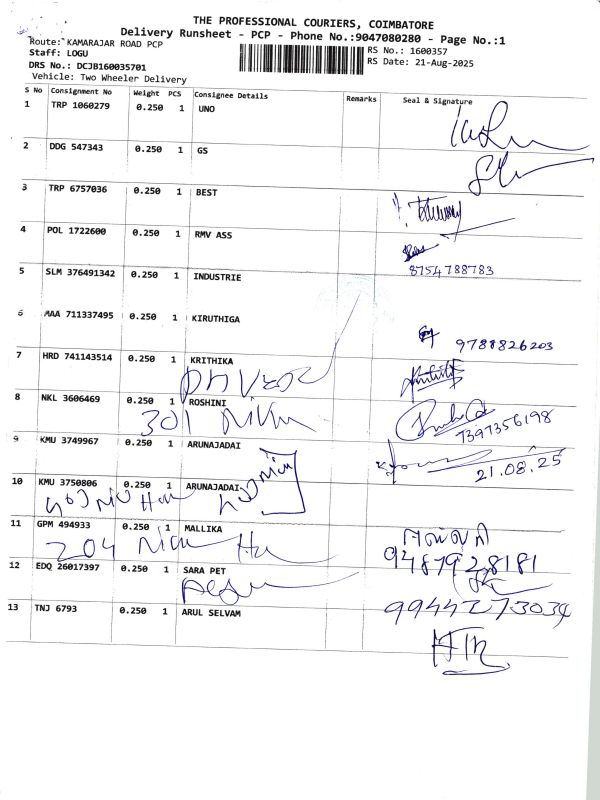 THE PROFESSIONAL COURIERS, COIMBATORE
Delivery Runsheet - PCP - Phone No.:9047080280 - Page No.:1
Route: KAMARAJAR ROAD PCP
RS No.: 1600357
Staff: LOGU
RS Date: 21-Aug-2025
DRS No.: DCJB160035701
Vehicle: Two Wheeler Delivery
S No Consignment No Weight PCS Consignee Details Remarks Seal & Signature
1 TRP 1060279 0.250 1 UNO
2 DDG 547343 0.250 1 GS
3 TRP 6757036 0.250 1 BEST
4 POL 1722600 0.250 1 RMV ASS
8754788783
5 SLM 376491342 0.250 1 INDUSTRIE
6 MAA 711337495 0.250 1 KIRUTHIGA
9788826203
7 HRD 741143514 0.250 1 KRITHIKA
8 NKL 3606469 0.250 1 ROSHINI
301
7397356198
9 KMU 3749967 0.250 1 ARUNAJADAI
21.08.25
10 KMU 3750806 0.250 1 ARUNAJADAI
11 GPM 494933 0.250 1 MALLIKA
204
9487928181
12 EDQ 26017397 0.250 1 SARA PET
9944273034
13 TNJ 6793 0.250 1 ARUL SELVAM